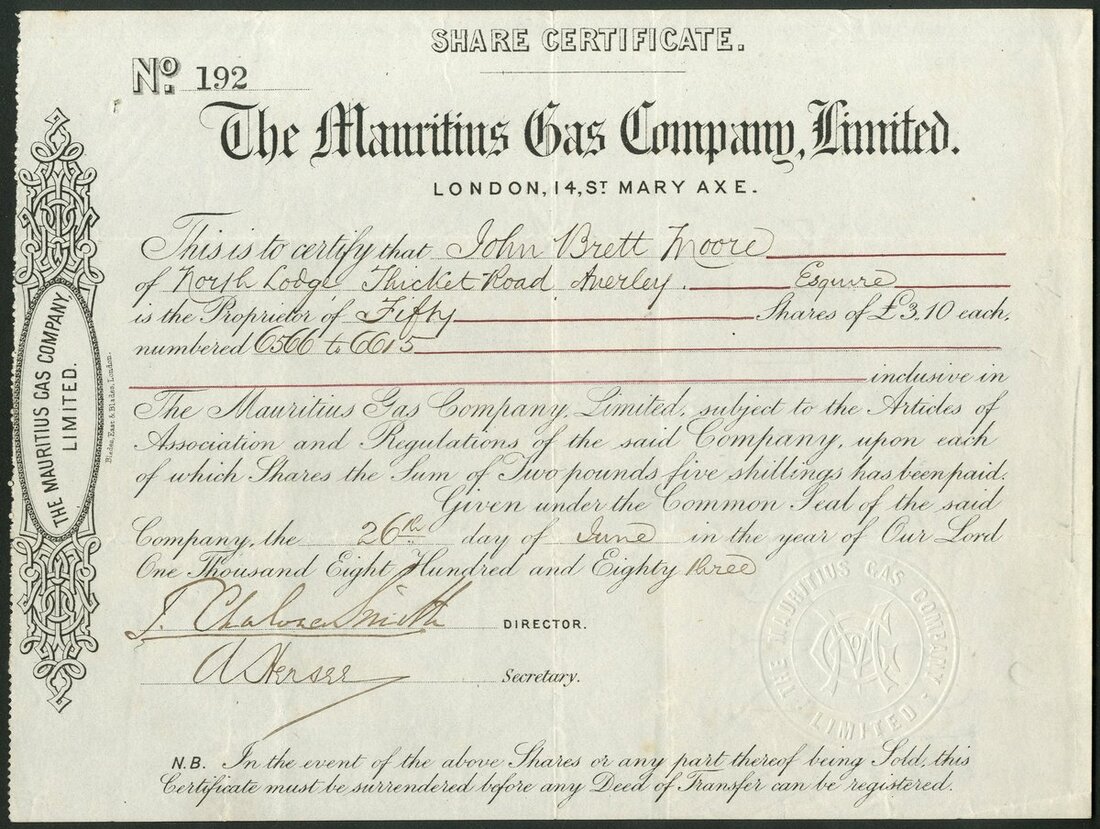 SHARE CERTIFICATE.
No. 192
The Mauritius Gas Company, Limited.
LONDON, 14, ST MARY AXE.
This is to certify that John Brett Moore
of North Lodge Thicket Road Anerley. Esquire
is the Proprietor of Fifty Shares of £3,10 each,
numbered 6566 to 6615
inclusive in
The Mauritius Gas Company, Limited, subject to the Articles of
Association and Regulations of the said Company, upon each
of which Shares the Sum of Two pounds five shillings has been paid.
Given under the Common Seal of the said
Company, the 26th day of June in the year of Our Lord
One Thousand Eight Hundred and Eighty three
Smith DIRECTOR.
A Secretary.
N.B. In the event of the above Shares or any part thereof being Sold, this
Certificate must be surrendered before any Deed of Transfer can be registered.
THE MAURITIUS GAS COMPANY
LIMITED.
Blades, East & Blades, London.
THE MAURITIUS GAS COMPANY
LIMITED